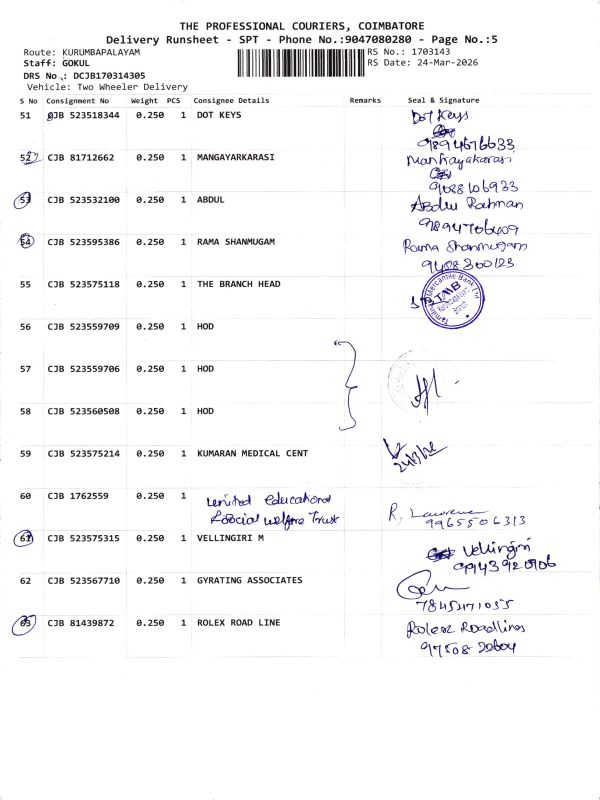 THE PROFESSIONAL COURIERS, COIMBATORE
Delivery Runsheet - SPT - Phone No.:9047080280 - Page No.:5
Route: KURUMBAPALAYAM RS No.: 1703143
Staff: GOKUL RS Date: 24-Mar-2026
DRS No.: DCJB170314305
Vehicle: Two Wheeler Delivery
S No Consignment No Weight PCS Consignee Details Remarks Seal & Signature
51 CJB 523518344 0.250 1 DOT KEYS Dot Keys
9894676633
52 CJB 81712662 0.250 1 MANGAYARKARASI
9088106933
53 CJB 523532100 0.250 1 ABDUL Abdul Rahman
54 CJB 523595386 0.250 1 RAMA SHANMUGAM Rama Shanmugam
9488300123
55 CJB 523575118 0.250 1 THE BRANCH HEAD TMB
56 CJB 523559709 0.250 1 HOD
57 CJB 523559706 0.250 1 HOD
58 CJB 523560508 0.250 1 HOD
59 CJB 523575214 0.250 1 KUMARAN MEDICAL CENT
60 CJB 1762559 0.250 1 United educational
& social welfare Trust R, Lawrence
9965506313
61 CJB 523575315 0.250 1 VELLINGIRI M Vellingiri
9943920906
62 CJB 523567710 0.250 1 GYRATING ASSOCIATES
63 CJB 81439872 0.250 1 ROLEX ROAD LINE Rolex Roadlines
97508 20604